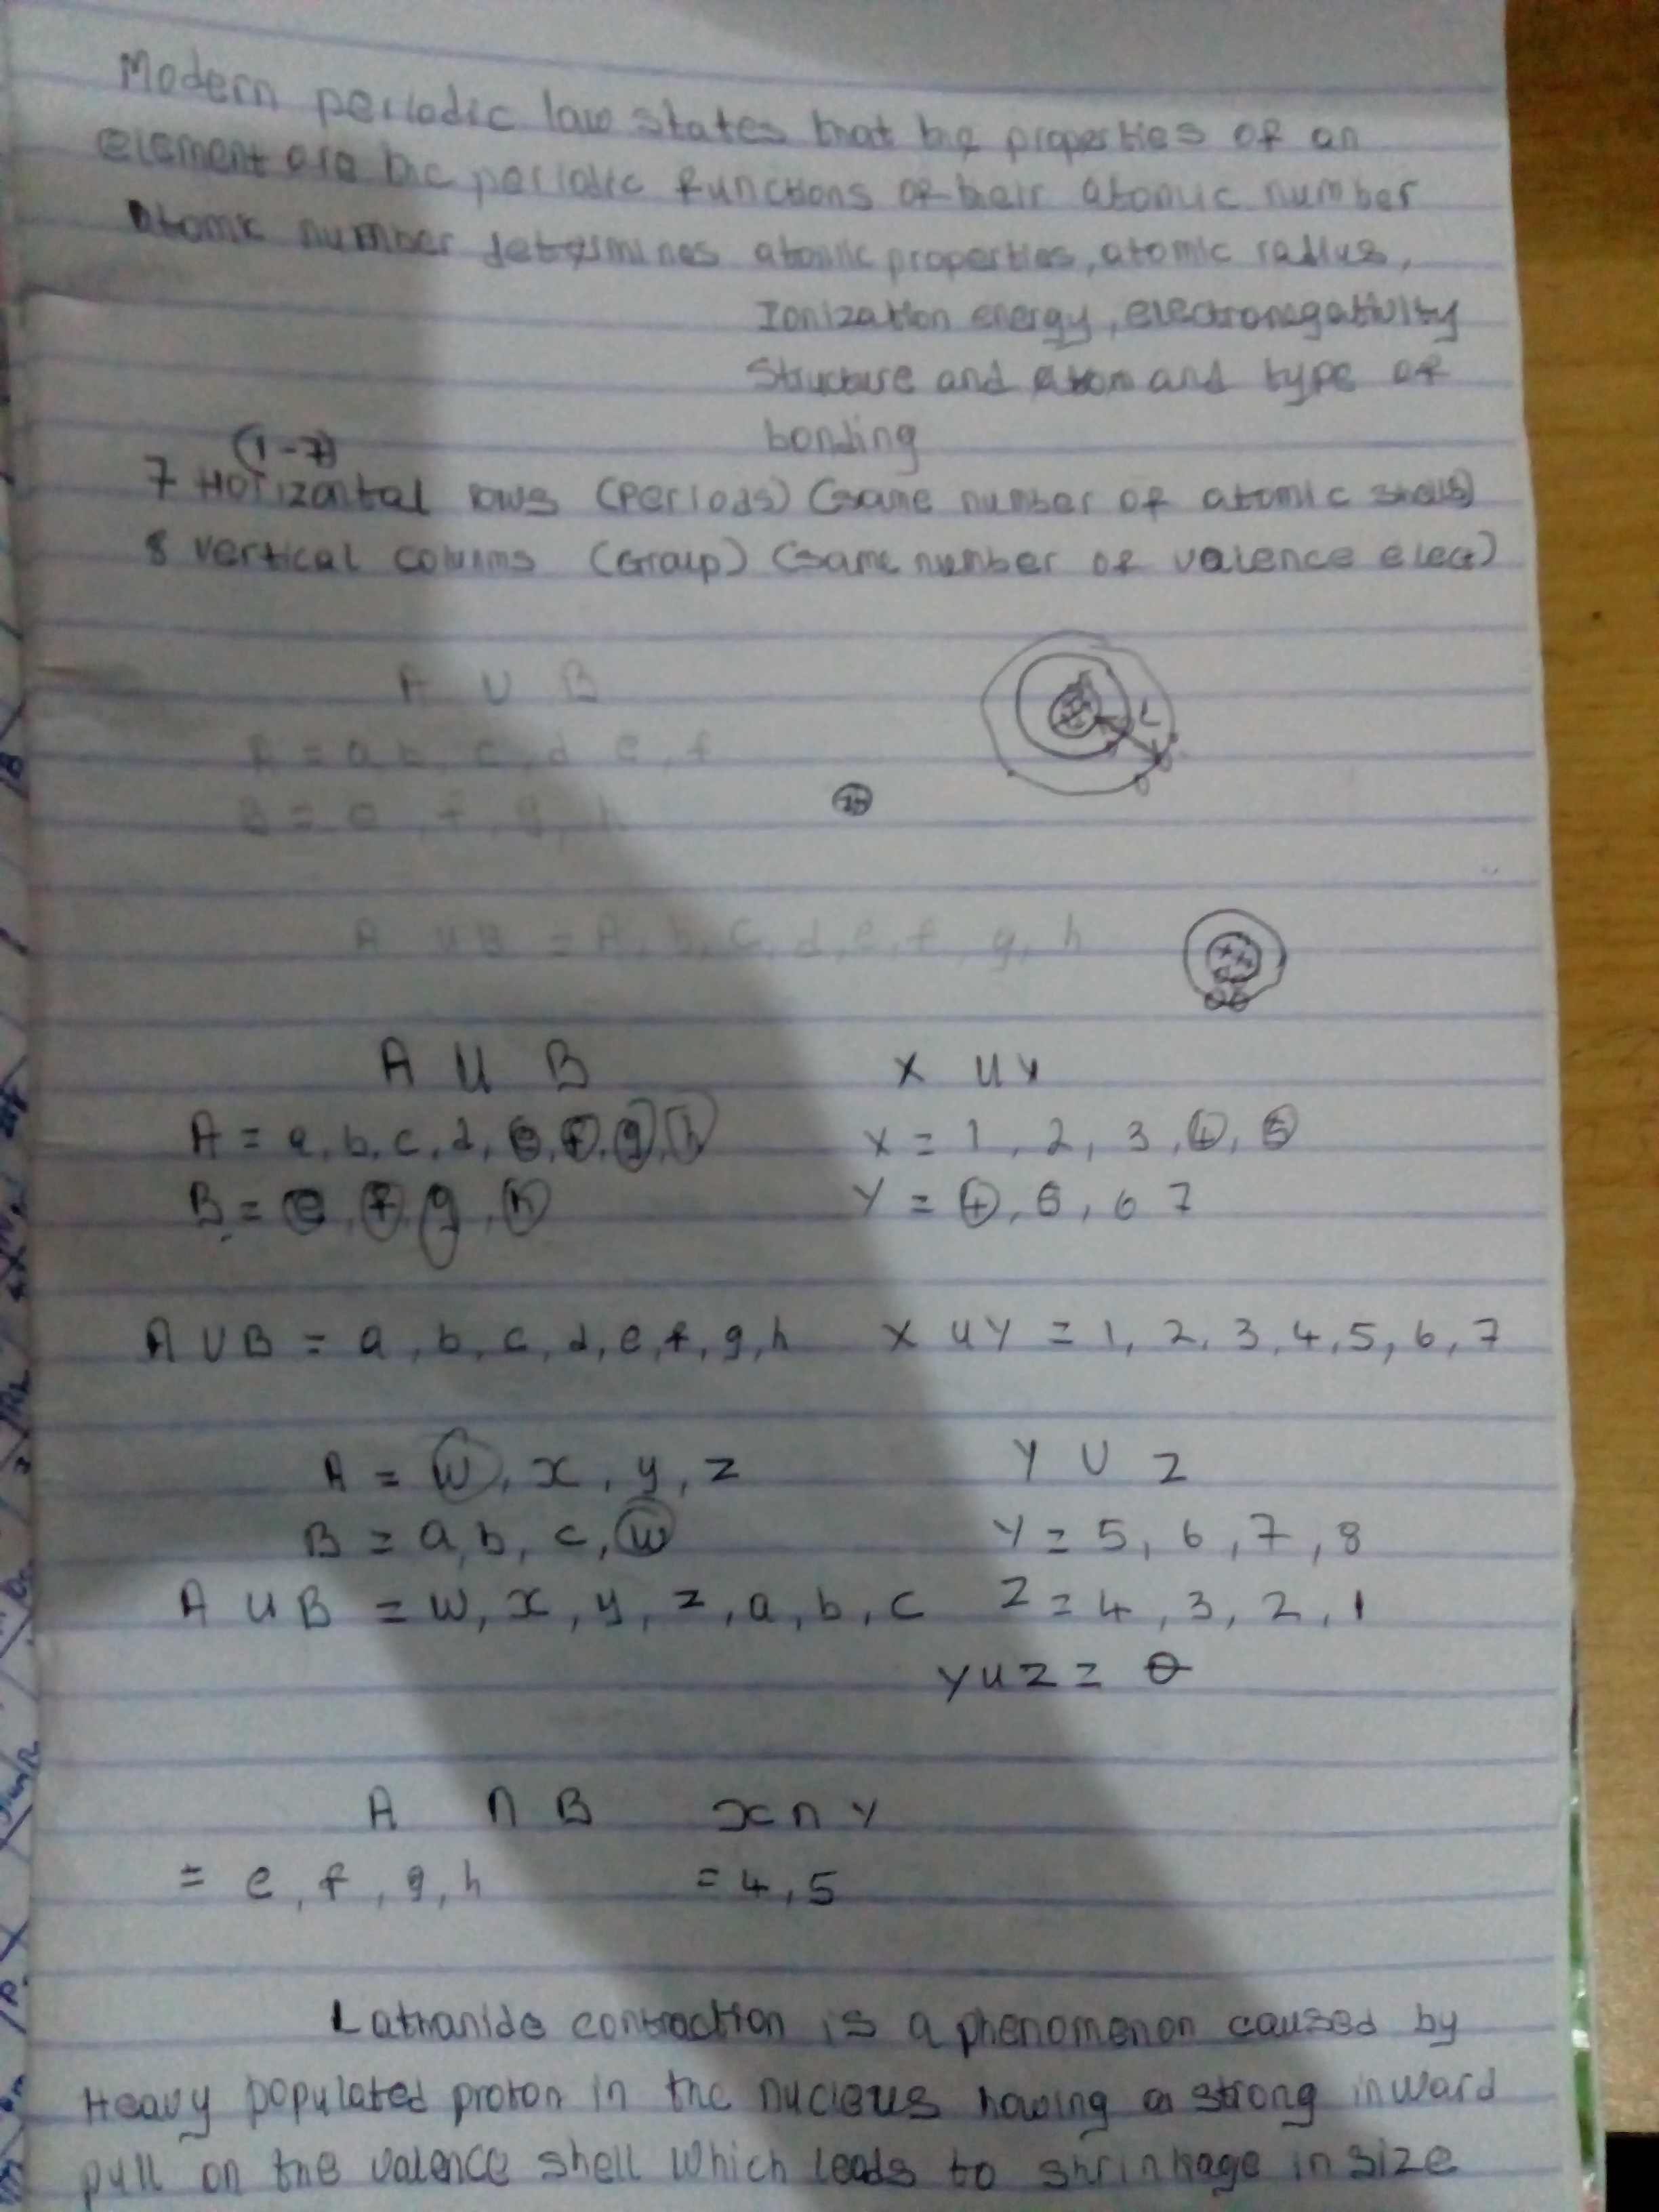 Modern periodic law states that the properties of an
element are the periodic functions of their atomic number
Atomic number determines atomic properties, atomic radius,
Ionization energy, electronegativity
Structure and atom and type of
bonding
(1-7)
7 Horizontal rows (Periods) (same number of atomic shells)
8 vertical columns (Group) (same number of valence elect)
A U B
A = a, b, c, d, e, f
B = e, f, g, h
A U B = A, b, c, d, e, f, g, h
A U B
A = a, b, c, d, e, f, g, h
B = e, f, g, h
X U Y
X = 1, 2, 3, 4, 5
Y = 4, 5, 6 7
A U B = a, b, c, d, e, f, g, h
X U Y = 1, 2, 3, 4, 5, 6, 7
A = w, x, y, z
B = a, b, c, w
A U B = w, x, y, z, a, b, c
Y U Z
Y = 5, 6, 7, 8
Z = 4, 3, 2, 1
Y U Z = θ
A ∩ B
= e, f, g, h
x ∩ y
= 4, 5
Lathanide contraction is a phenomenon caused by
Heavy populated proton in the nucleus having a strong inward
pull on the valence shell which leads to shrinkage in size